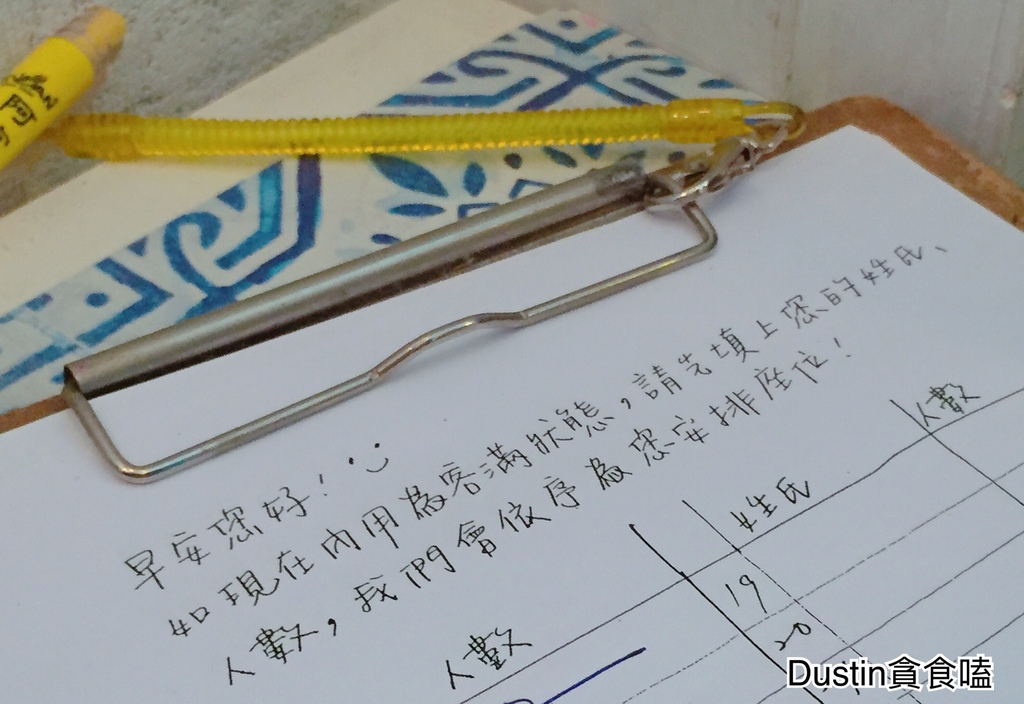 早安您好！
如現在內用為客滿狀態，請先填上您的姓氏、
人數，我們會依序為您安排座位！
人數 姓氏 人數
19
20
Dustin貪食嗑